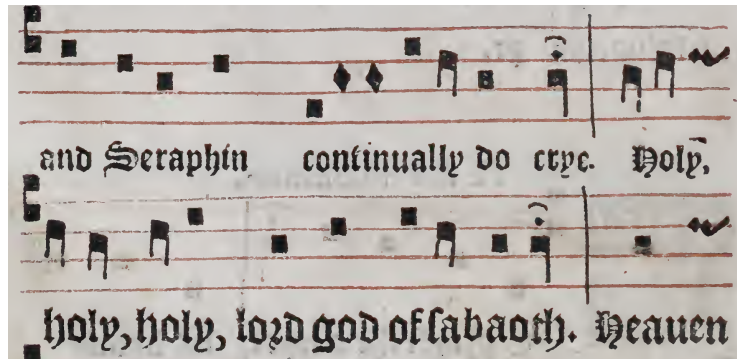 and Seraphin continually do crye. Holy,
holy, holy, lord god of sabaoth. Heauen